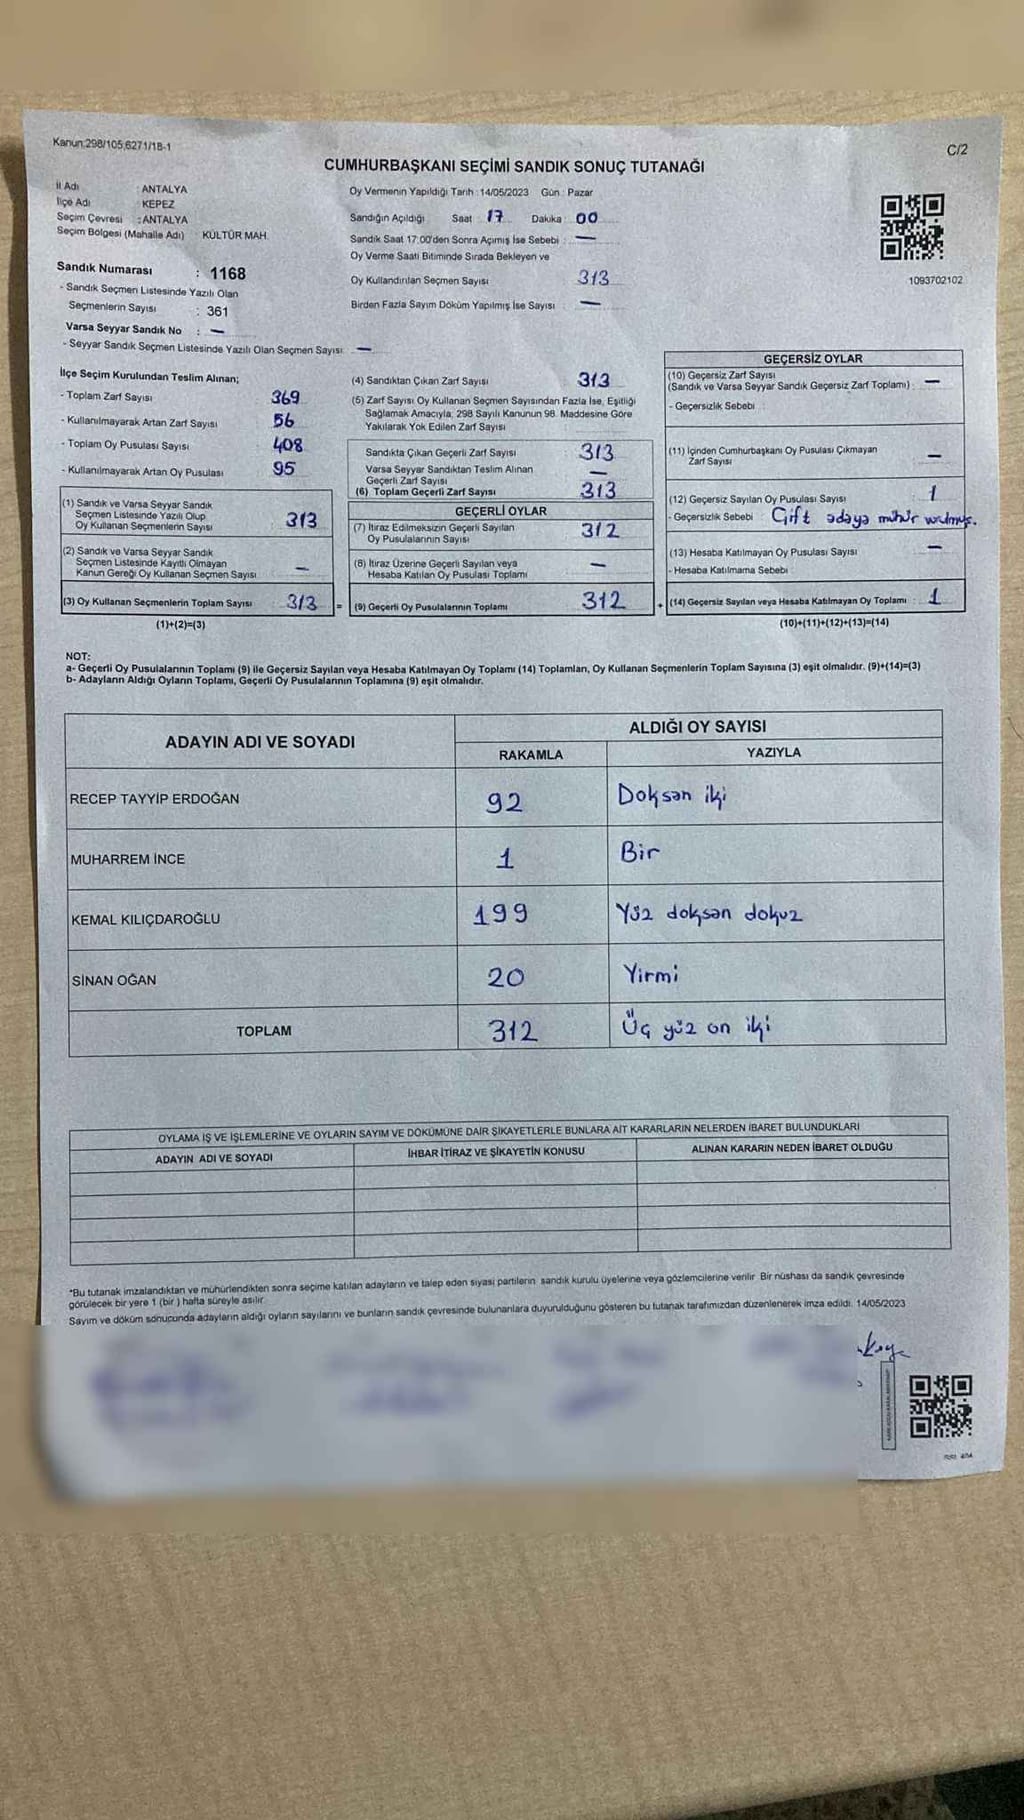 Kanun:298/105,6271/18-1
C/2
CUMHURBAŞKANI SEÇİMİ SANDIK SONUÇ TUTANAĞI
İl Adı : ANTALYA
İlçe Adı : KEPEZ
Seçim Çevresi : ANTALYA
Seçim Bölgesi (Mahalle Adı) : KÜLTÜR MAH.
Sandık Numarası : 1168
- Sandık Seçmen Listesinde Yazılı Olan
Seçmenlerin Sayısı : 361
Varsa Seyyar Sandık No : —
- Seyyar Sandık Seçmen Listesinde Yazılı Olan Seçmen Sayısı: —
Oy Vermenin Yapıldığı Tarih : 14/05/2023 Gün : Pazar
Sandığın Açıldığı Saat 17 Dakika : 00
Sandık Saat 17:00'den Sonra Açımış İse Sebebi : —
Oy Verme Saati Bitiminde Sırada Bekleyen ve
Oy Kullandırılan Seçmen Sayısı 313
Birden Fazla Sayım Döküm Yapılmış İse Sayısı : —
1093702102
İlçe Seçim Kurulundan Teslim Alınan;
- Toplam Zarf Sayısı 369
- Kullanılmayarak Artan Zarf Sayısı 56
- Toplam Oy Pusulası Sayısı 408
- Kullanılmayarak Artan Oy Pusulası 95
(1) Sandık ve Varsa Seyyar Sandık
Seçmen Listesinde Yazılı Olup
Oy Kullanan Seçmenlerin Sayısı 313
(2) Sandık ve Varsa Seyyar Sandık
Seçmen Listesinde Kayıtlı Olmayan
Kanun Gereği Oy Kullanan Seçmen Sayısı —
(3) Oy Kullanan Seçmenlerin Toplam Sayısı 313 =
(1)+(2)=(3)
(4) Sandıktan Çıkan Zarf Sayısı 313
(5) Zarf Sayısı Oy Kullanan Seçmen Sayısından Fazla İse, Eşitliği
Sağlamak Amacıyla; 298 Sayılı Kanunun 98. Maddesine Göre
Yakılarak Yok Edilen Zarf Sayısı
Sandıkta Çıkan Geçerli Zarf Sayısı 313
Varsa Seyyar Sandıktan Teslim Alınan
Geçerli Zarf Sayısı —
(6) Toplam Geçerli Zarf Sayısı 313
GEÇERLİ OYLAR
(7) İtiraz Edilmeksizin Geçerli Sayılan
Oy Pusulalarının Sayısı 312
(8) İtiraz Üzerine Geçerli Sayılan veya
Hesaba Katılan Oy Pusulası Toplamı —
(9) Geçerli Oy Pusulalarının Toplamı 312 +
GEÇERSİZ OYLAR
(10) Geçersiz Zarf Sayısı
(Sandık ve Varsa Seyyar Sandık Geçersiz Zarf Toplamı) : —
- Geçersizlik Sebebi :
(11) İçinden Cumhurbaşkanı Oy Pusulası Çıkmayan
Zarf Sayısı —
(12) Geçersiz Sayılan Oy Pusulası Sayısı 1
- Geçersizlik Sebebi Çift adaya mühür vurulmuş.
(13) Hesaba Katılmayan Oy Pusulası Sayısı —
- Hesaba Katılmama Sebebi
(14) Geçersiz Sayılan veya Hesaba Katılmayan Oy Toplamı : 1
(10)+(11)+(12)+(13)=(14)
NOT:
a- Geçerli Oy Pusulalarının Toplamı (9) ile Geçersiz Sayılan veya Hesaba Katılmayan Oy Toplamı (14) Toplamları, Oy Kullanan Seçmenlerin Toplam Sayısına (3) eşit olmalıdır. (9)+(14)=(3)
b- Adayların Aldığı Oyların Toplamı, Geçerli Oy Pusulalarının Toplamına (9) eşit olmalıdır.
ADAYIN ADI VE SOYADI
ALDIĞI OY SAYISI
RAKAMLA YAZIYLA
RECEP TAYYİP ERDOĞAN 92 Doksan iki
MUHARREM İNCE 1 Bir
KEMAL KILIÇDAROĞLU 199 Yüz doksan dokuz
SİNAN OĞAN 20 Yirmi
TOPLAM 312 Üç yüz on iki
OYLAMA İŞ VE İŞLEMLERİNE VE OYLARIN SAYIM VE DÖKÜMÜNE DAİR ŞİKAYETLERLE BUNLARA AİT KARARLARIN NELERDEN İBARET BULUNDUKLARI
ADAYIN ADI VE SOYADI İHBAR İTİRAZ VE ŞİKAYETİN KONUSU ALINAN KARARIN NEDEN İBARET OLDUĞU
*Bu tutanak imzalandıktan ve mühürlendikten sonra seçime katılan adayların ve talep eden siyasi partilerin sandık kurulu üyelerine veya gözlemcilerine verilir. Bir nüshası da sandık çevresinde
görülecek bir yere 1 (bir ) hafta süreyle asılır.
Sayım ve döküm sonucunda adayların aldığı oyların sayılarını ve bunların sandık çevresinde bulunanlara duyurulduğunu gösteren bu tutanak tarafımızdan düzenlenerek imza edildi. 14/05/2023